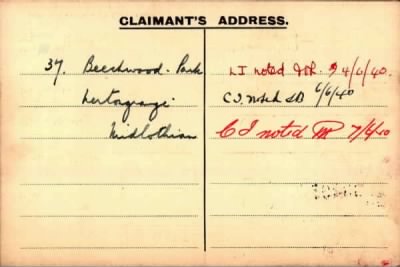 CLAIMANT'S ADDRESS.
37. Beechwood Park
Newtongrange
Midlothian
LI noted 4/6/40.
C.I. noted 6/6/40
C I noted 7/6/40